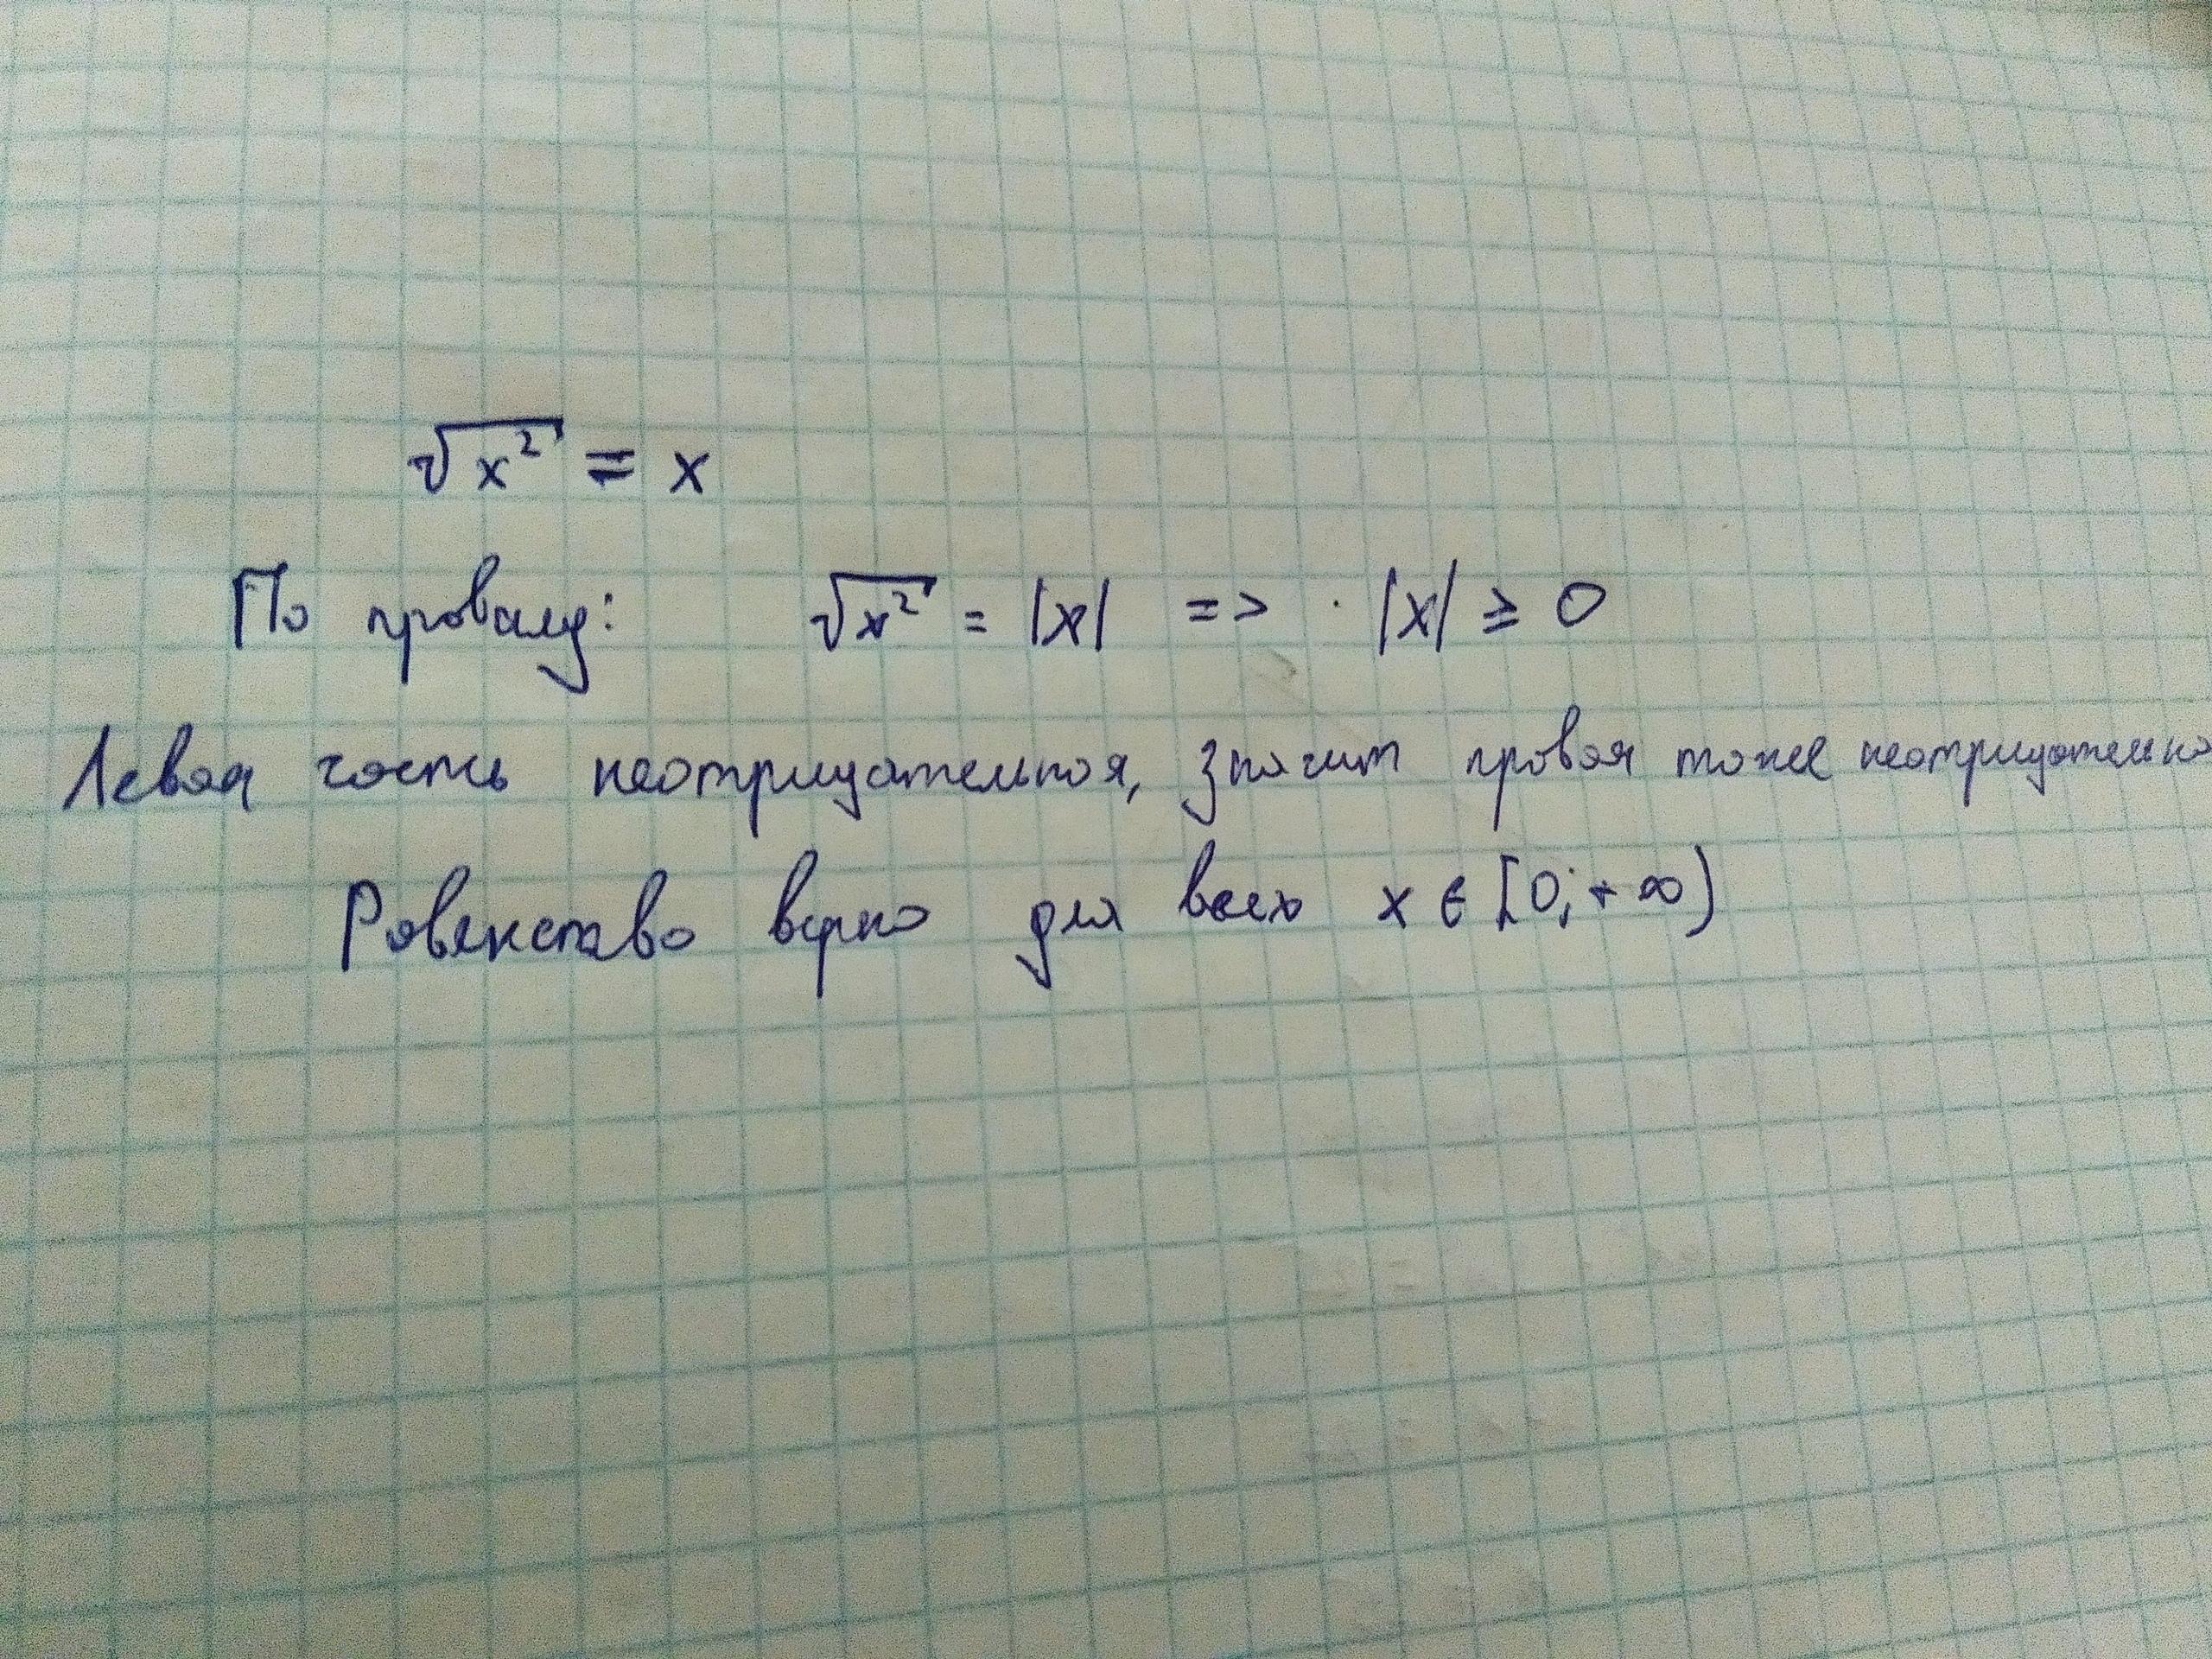 √x² = x
По правилу: √x² = |x| => |x| ≥ 0
Левая часть неотрицательная, значит правая тоже неотрицательна
Равенство верно для всех x ∈ [0; + ∞)